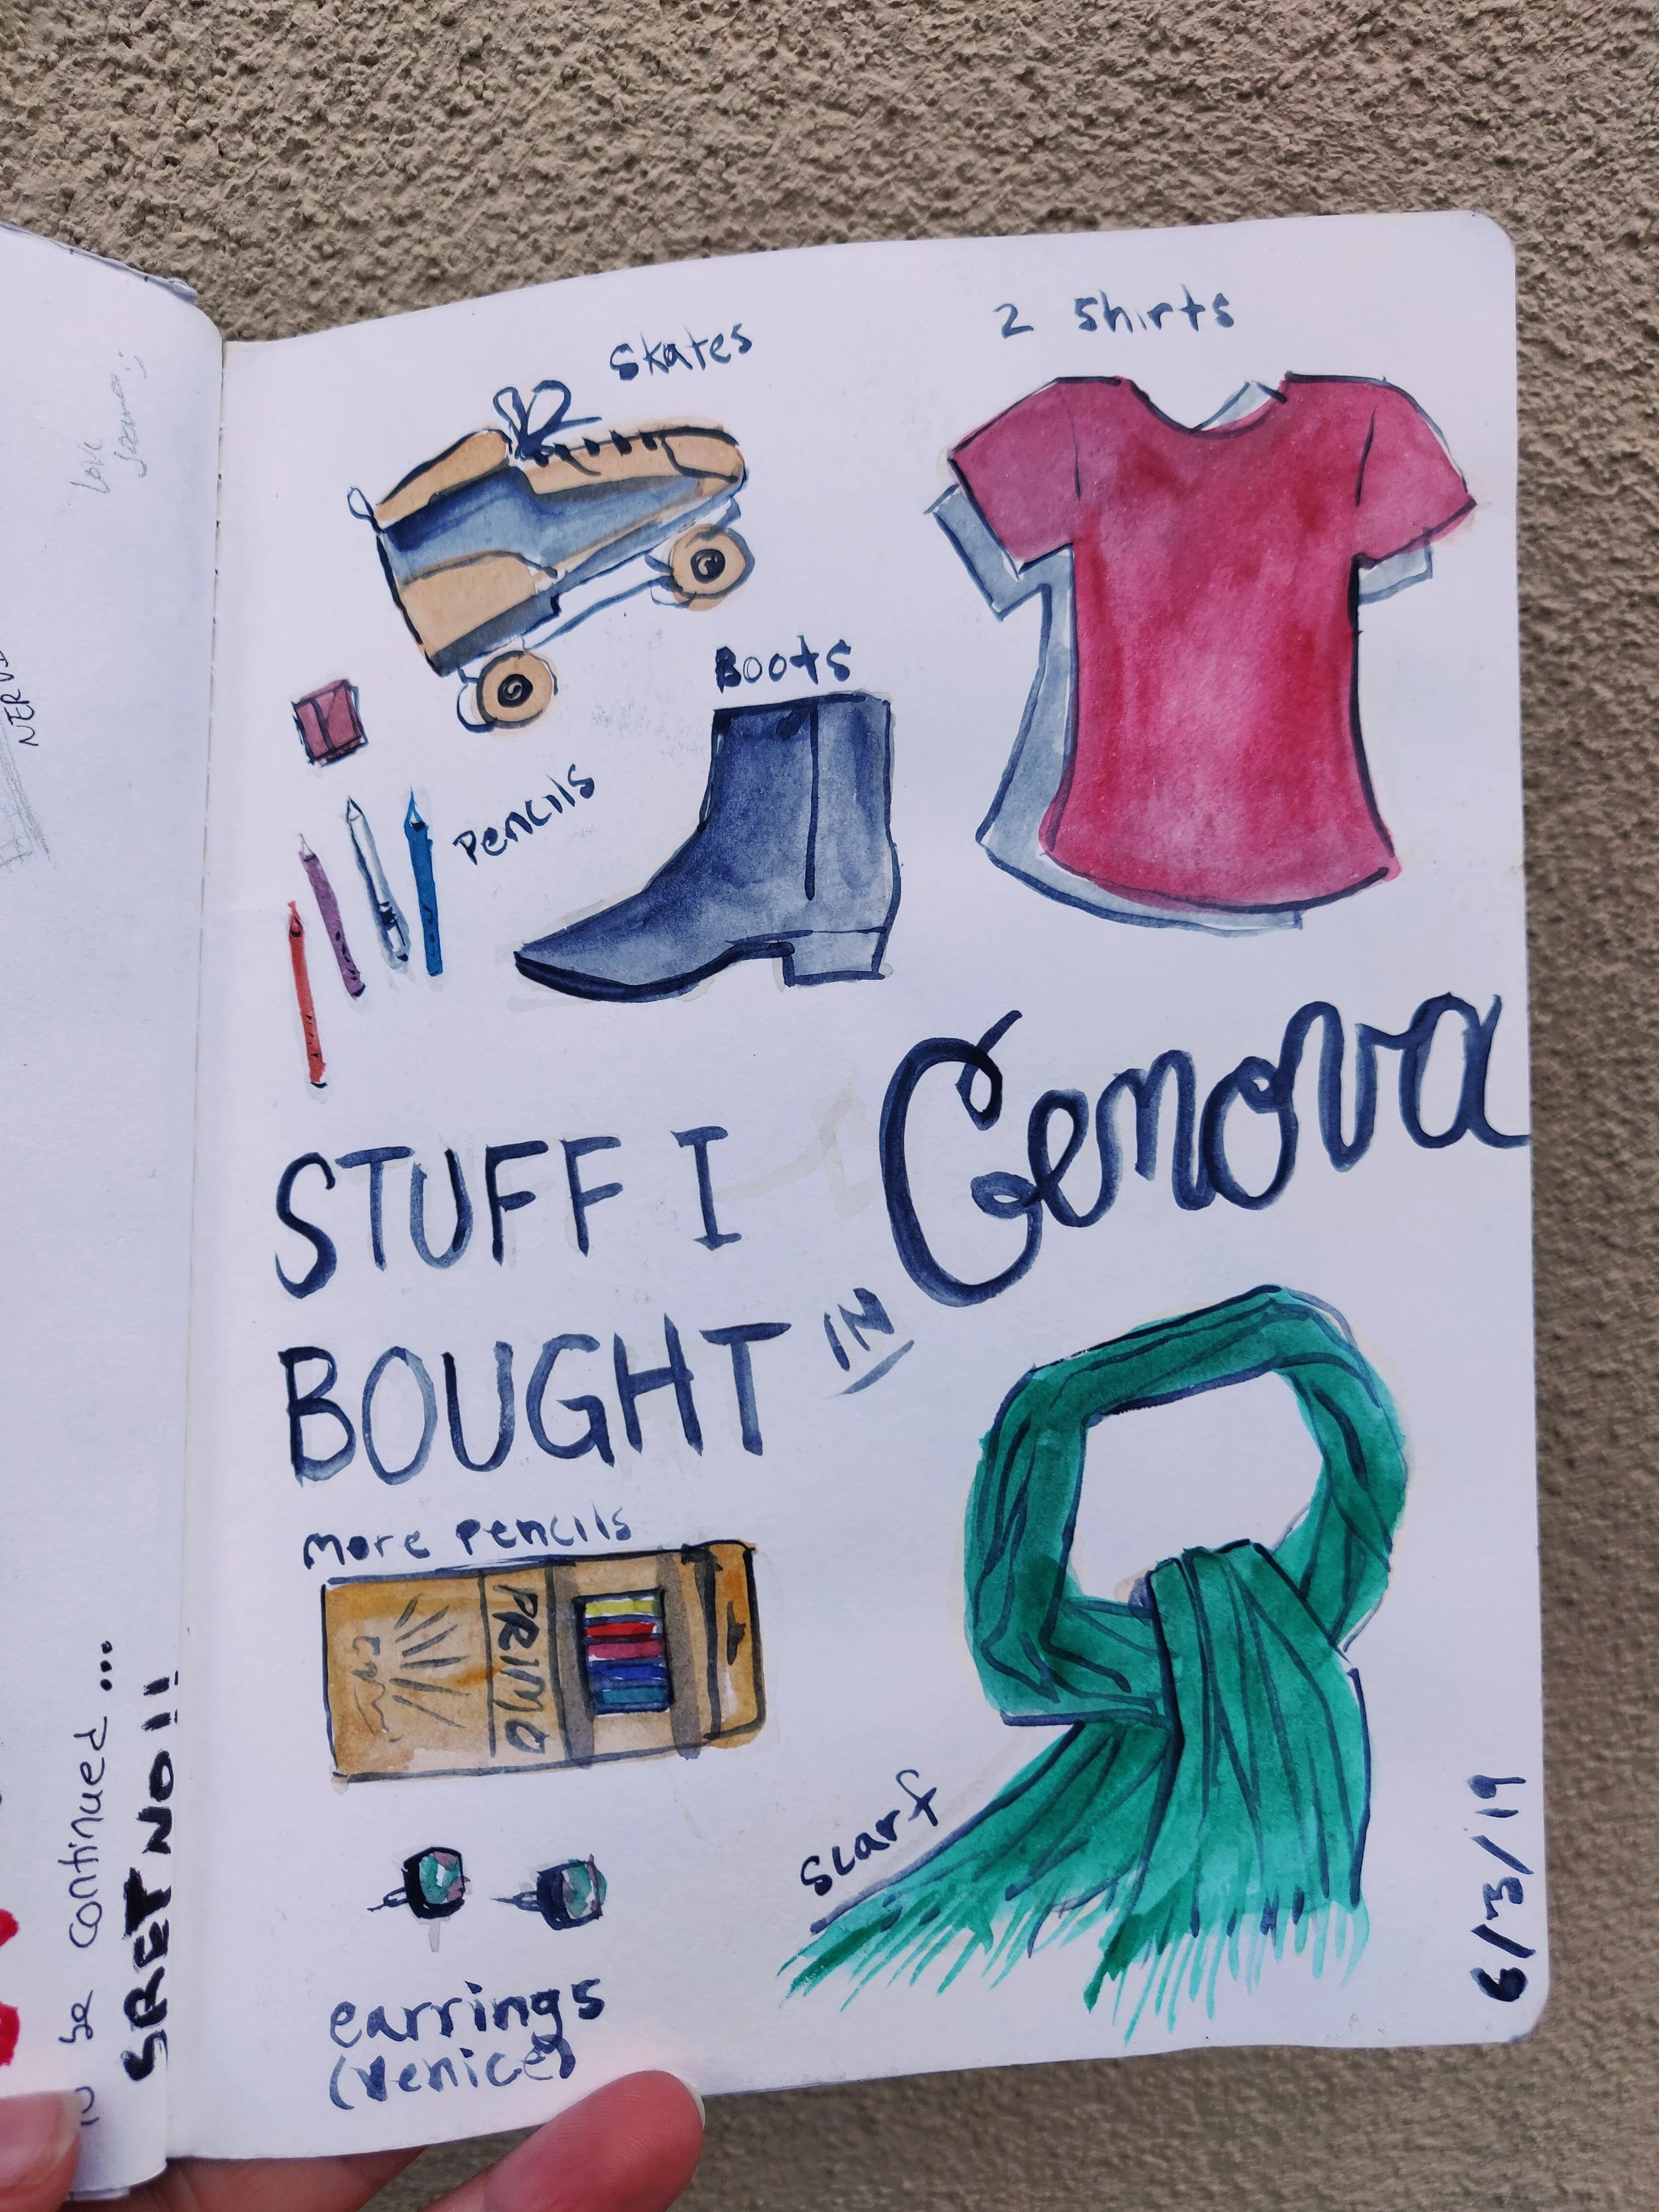 Skates
2 Shirts
Boots
Pencils
STUFF I
BOUGHT
IN
Genova
more pencils
PRIMO
scarf
earrings
(venice)
6/3/19
Love
NERVI
be continued ...
SRETNO!!